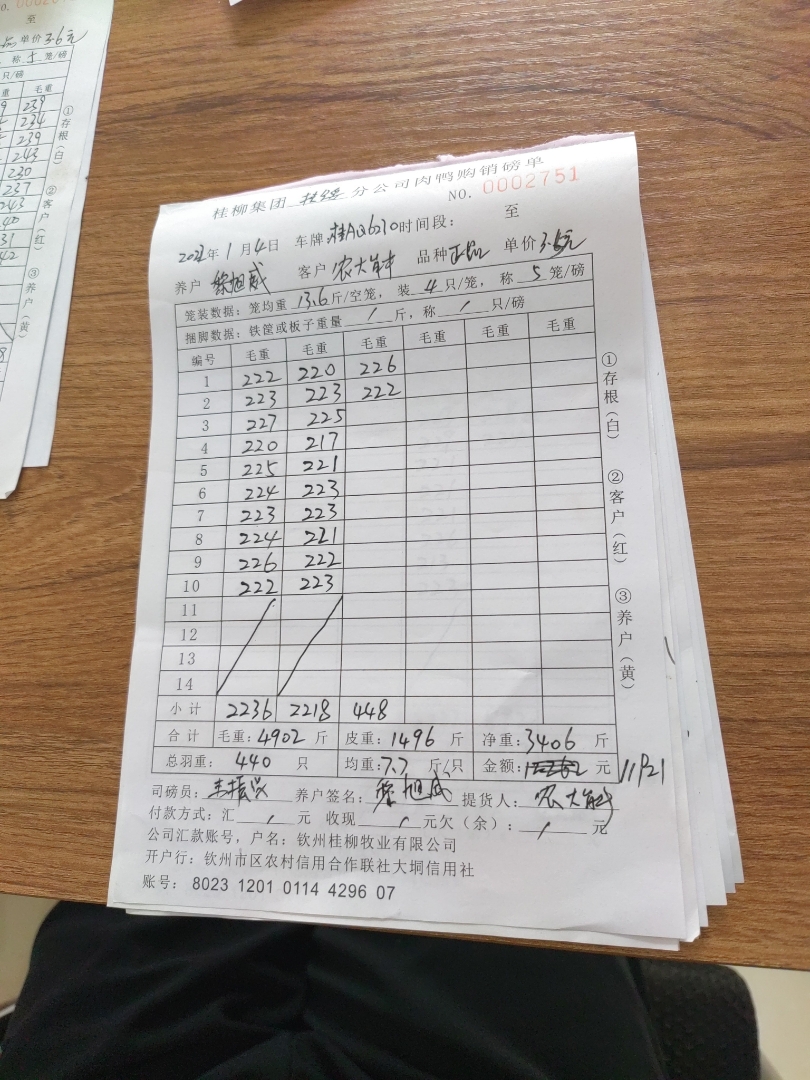 NO. 0002
至
单价3.6元
称 5 笼/磅
只/磅
重 毛重
239
234
239
243
230
237
①存根(白) ②客户(红) ③养户(黄)
桂柳集团 分公司肉鸭购销磅单
NO. 0002751
2022年1月4日 车牌:桂AQ6370时间段: 至
养户 徐旭威 客户 农大 品种 正品 单价3.5元
笼装数据:笼均重 13.6 斤/空笼, 装 4 只/笼, 称 5 笼/磅
捆脚数据:铁筐或板子重量 / 斤,称 / 只/磅
编号 毛重 毛重 毛重 毛重 毛重 毛重
1 222 220 226
2 223 223 222
3 227 225
4 220 217
5 225 221
6 224 223
7 223 223
8 224 221
9 226 222
10 222 223
11
12
13
14
小计 2236 2218 448
合计 毛重:4902 斤 皮重:1496 斤 净重:3406 斤
总羽重: 440 只 均重:7.7 斤/只 金额: 元 11921
①存根(白) ②客户(红) ③养户(黄)
司磅员: 养户签名: 旭威 提货人: 农大
付款方式:汇 / 元 收现 / 元欠(余): / 元
公司汇款账号,户名:钦州桂柳牧业有限公司
开户行:钦州市区农村信用合作联社大垌信用社
账号: 8023 1201 0114 4296 07